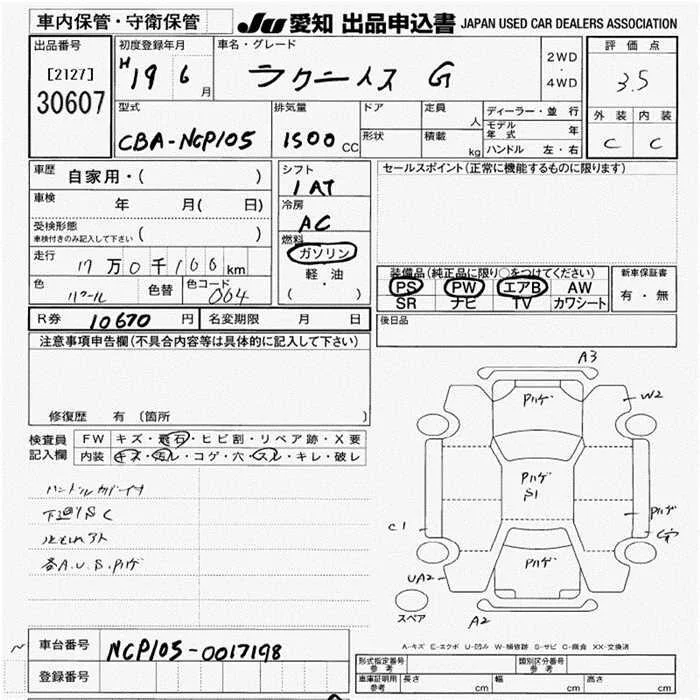 車内保管・守衛保管
JU 愛知 出品申込書 JAPAN USED CAR DEALERS ASSOCIATION
出品番号 初度登録年月 車名・グレード 2WD・4WD 評価点
[2127] 30607 H19 6月 ラクティス G 3.5
型式 排気量 ドア 定員 人 ディーラー・並行 外装 内装
CBA-NCP105 1500 CC 形状 積載 kg モデル年式 年 C C
ハンドル 左・右
車歴 自家用・( ) シフト 1AT セールスポイント(正常に機能するものに限ります)
車検 年 月( 日) 冷房 AC
受検形態 車検付きのみ記入して下さい ( ) 燃料 ガソリン
走行 17万0千166km 軽油 装備品(純正品に限り○をつけてください) 新車保証書
色 色替 色コード 064 ( ・ ) PS PW エアB AW 有・無
SR ナビ TV カワシート
R券 10670円 名変期限 月 日 後日品
注意事項申告欄(不具合内容等は具体的に記入して下さい)
修復歴 有 (箇所 )
検査員記入欄 FW キズ・飛石・ヒビ割・リペア跡・X要
内装 キズ・汚レ・コゲ・穴・スレ・キレ・破レ
ハンドルカバーイナ
下廻りSC
各A.U.S.Pハゲ
A3
Pハゲ W2
Pハゲ
S1
Pハゲ
C1
Pハゲ
UA2
スペア A2
A-キズ E-エクボ U-凹み W-補修跡 S-サビ C-腐食 XX-交換済
車台番号 NCP105-0017198
登録番号
型式指定番号 参考 類別区分番号 参考
車庫証明用 参考 長さ cm 幅 cm 高さ cm